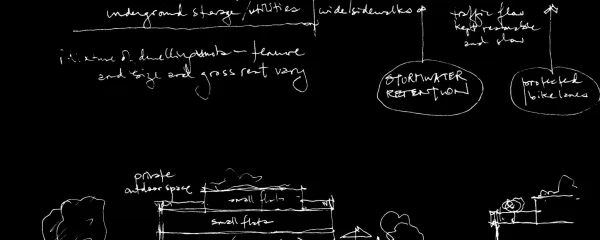 underground storage/utilities
wide sidewalks
traffic flow
kept reasonable
and slow
mixture of dwelling units – tenure
and size and gross rent vary
STORMWATER
RETENTION
protected
bike lanes
private
outdoor space
small flats
small flats